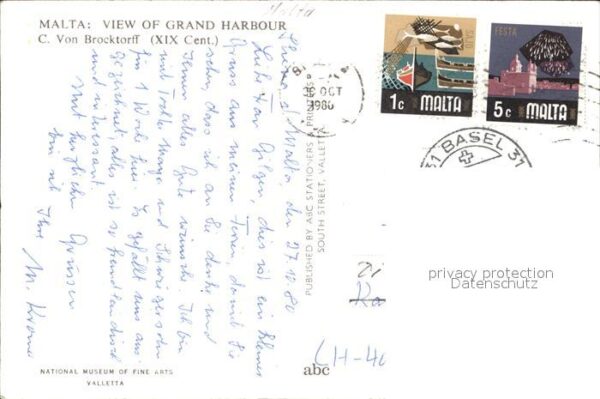 Malta
MALTA: VIEW OF GRAND HARBOUR
C. Von Brocktorff (XIX Cent.)
Sliema, Malta, den 27.10.80
Liebe Frau Gilgen, dies ist ein kleiner
Gruss aus meinen Ferien, damit Sie
sehen, dass ich an Sie denke und
Ihnen alles Gute wünsche. Ich bin
mit Tochter und Schwiegersohn
für 1 Woche hier. Es gefällt uns aus-
gezeichnet, alles ist so fremdländisch
und interessant.
Mit herzlichen Grüssen
bin ich Ihre
M.
NATIONAL MUSEUM OF FINE ARTS
VALLETTA
PUBLISHED BY ABC STATIONERS & PRINTERS
SOUTH STREET, VALLET
abc
OCT
1980
SAJD
1c MALTA
FESTA
5c MALTA
31 BASEL 31
CH-40
privacy protection
Datenschutz